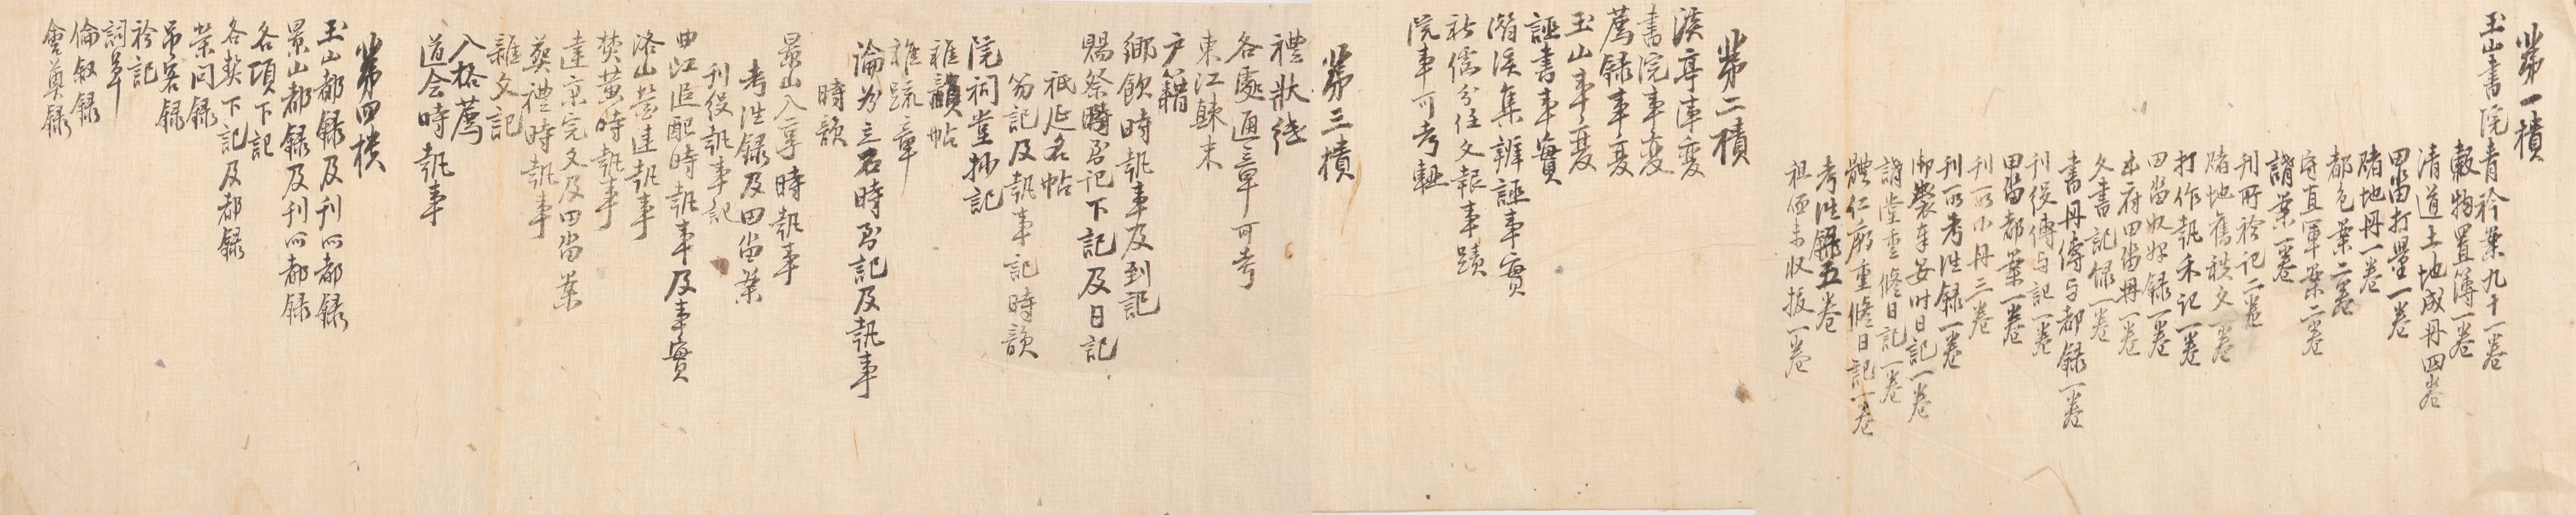 第一櫃
玉山書院青衿案九十一卷
穀物置簿一卷
清道土地成冊四卷
田畓打量一卷
賭地冊一卷
都色案二卷
守直軍案二卷
講案一卷
刊所衿記二卷
賭地舊秩文一卷
打作執禾記一卷
田畓奴婢錄一卷
本府田畓冊一卷
文書記錄一卷
書冊傳与都錄一卷
刊役傳与記一卷
田畓都案一卷
刊所小冊三卷
刊所考往錄一卷
御製奉安時日記一卷
講堂重修日記一卷
體仁廟重修日記一卷
考往錄五卷
租価未收扳一卷
第二櫃
溪亭事變
書院事變
薦錄事變
玉山事變
誣書事實
潛溪集辨誣事實
新儒分任文報事蹟
院事可考軸
第三櫃
禮狀綣
各處通章可考
東江顛末
戶籍
鄉飲時執事及到記
賜祭時到記下記及日記
祗延名帖
笏記及執事記時韻
院祠堂抄記
雜韻帖
雜疏章
論力立石時到記及執事
時韻
景山入享時執事
考往錄及田畓案
刊役執事記
曲江追配時執事及事實
洛山營建執事
焚黃時執事
達京完文及田畓案
葬禮時執事
雜文記
入格薦
道会時執事
第四櫃
玉山都錄及刊所都錄
景山都錄及刊所都錄
各項下記
各契下記及都錄
榮问錄
吊客錄
衿記
詞草
倫敍錄
會奠錄